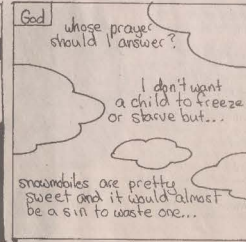 God
whose prayer
should I answer?
I don't want
a child to freeze
or starve but...
snowmobiles are pretty
sweet and it would almost
be a sin to waste one...